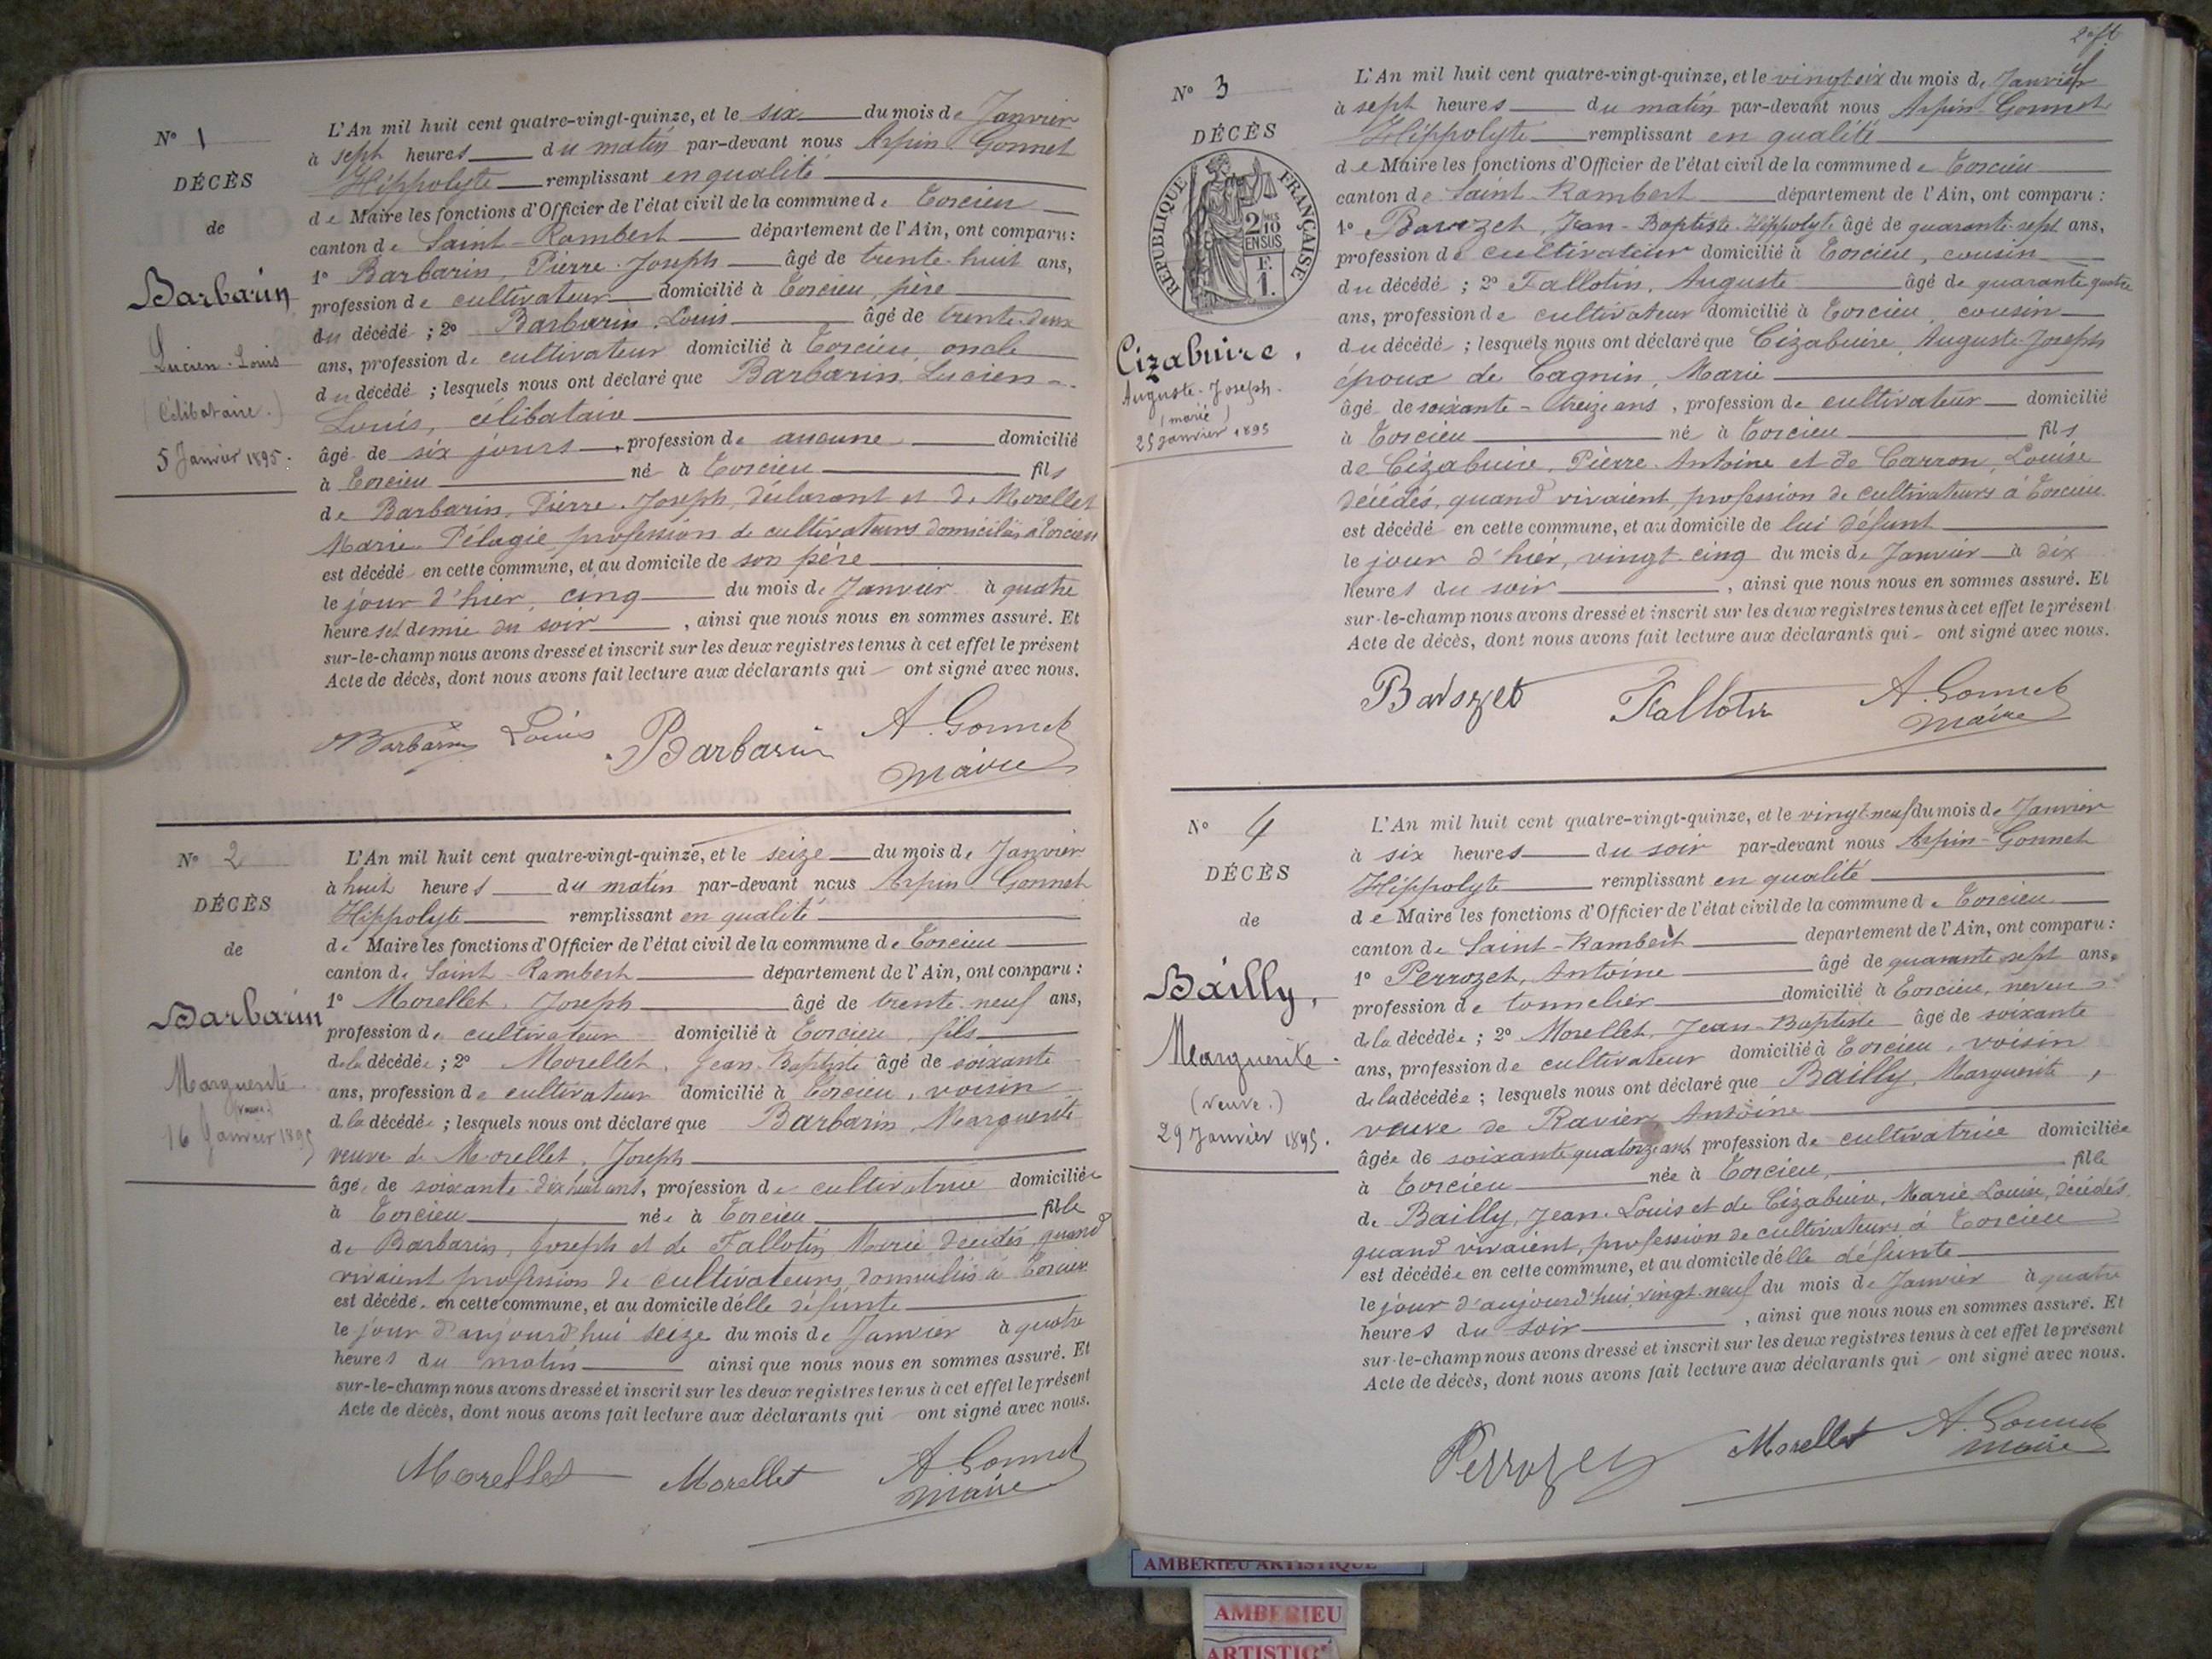 N° 1
DÉCÈS
de
Barbarin
Lucien-Louis
(Célibataire.)
5 Janvier 1895.
L'An mil huit cent quatre-vingt-quinze, et le six du mois de Janvier
à sept heures du matin par-devant nous Arpin Gonnet
Hippolyte remplissant en qualité
de Maire les fonctions d'Officier de l'état civil de la commune de Torcieu
canton de Saint-Rambert département de l'Ain, ont comparu :
1° Barbarin, Pierre Joseph âgé de trente-huit ans,
profession de cultivateur domicilié à Torcieu, père
du décédé ; 2° Barbarin, Louis âgé de trente-deux
ans, profession de cultivateur domicilié à Torcieu, oncle
du décédé ; lesquels nous ont déclaré que Barbarin, Lucien-
Louis, célibataire
âgé de six jours, profession de aucune domicilié
à Torcieu né à Torcieu fils
de Barbarin, Pierre Joseph, déclarant et de Morellet
Marie Pélagie, profession de cultivateurs domiciliés à Torcieu
est décédé en cette commune, et au domicile de son père
le jour d'hier, cinq du mois de Janvier à quatre
heures et demie du soir, ainsi que nous nous en sommes assuré. Et
sur-le-champ nous avons dressé et inscrit sur les deux registres tenus à cet effet le présent
Acte de décès, dont nous avons fait lecture aux déclarants qui ont signé avec nous.
Barbarin Louis Barbarin A. Gonnet
Maire
N° 2
DÉCÈS
de
Barbarin
Marguerite
(veuve)
16 Janvier 1895
L'An mil huit cent quatre-vingt-quinze, et le seize du mois de Janvier
à huit heures du matin par-devant nous Arpin Gonnet
Hippolyte remplissant en qualité
de Maire les fonctions d'Officier de l'état civil de la commune de Torcieu
canton de Saint-Rambert département de l'Ain, ont comparu :
1° Morellet, Joseph âgé de trente-neuf ans,
profession de cultivateur domicilié à Torcieu, fils
de la décédée ; 2° Morellet, Jean-Baptiste âgé de soixante
ans, profession de cultivateur domicilié à Torcieu, voisin
de la décédée ; lesquels nous ont déclaré que Barbarin, Marguerite
veuve de Morellet, Joseph
âgée de soixante-dix huit ans, profession de cultivatrice domiciliée
à Torcieu née à Torcieu fille
de Barbarin, Joseph et de Fallotin, Marie, décédés, quand
vivaient profession de cultivateurs, domiciliés à Torcieu
est décédée en cette commune, et au domicile d'elle défunte
le jour d'aujourd'hui seize du mois de Janvier à quatre
heures du matin ainsi que nous nous en sommes assuré. Et
sur-le-champ nous avons dressé et inscrit sur les deux registres tenus à cet effet le présent
Acte de décès, dont nous avons fait lecture aux déclarants qui ont signé avec nous.
Morellet Morellet A. Gonnet
Maire
N° 3
DÉCÈS
RÉPUBLIQUE FRANÇAISE
2/10
EN SUS
F.
1.
Cizabuire,
Auguste-Joseph.
(marié)
25 Janvier 1895
L'An mil huit cent quatre-vingt-quinze, et le vingt-six du mois de Janvier
à sept heures du matin par-devant nous Arpin-Gonnet
Hippolyte remplissant en qualité
de Maire les fonctions d'Officier de l'état civil de la commune de Torcieu
canton de Saint-Rambert département de l'Ain, ont comparu :
1° Barozet, Jean-Baptiste-Hippolyte âgé de quarante-sept ans,
profession de cultivateur domicilié à Torcieu, cousin
du décédé ; 2° Fallotin, Auguste âgé de quarante quatre
ans, profession de cultivateur domicilié à Torcieu, cousin
du décédé ; lesquels nous ont déclaré que Cizabuire, Auguste-Joseph
époux de Cagnin, Marie
âgé de soixante-treize ans, profession de cultivateur domicilié
à Torcieu né à Torcieu fils
de Cizabuire, Pierre-Antoine et de Carron, Louise
décédés, quand vivaient, profession de cultivateurs à Torcieu
est décédé en cette commune, et au domicile de lui défunt
le jour d'hier, vingt-cinq du mois de Janvier à dix
heures du soir, ainsi que nous nous en sommes assuré. Et
sur-le-champ nous avons dressé et inscrit sur les deux registres tenus à cet effet le présent
Acte de décès, dont nous avons fait lecture aux déclarants qui ont signé avec nous.
Barozet Fallotin A. Gonnet
Maire
N° 4
DÉCÈS
de
Bailly,
Marguerite
(veuve.)
29 Janvier 1895.
L'An mil huit cent quatre-vingt-quinze, et le vingt-neuf du mois de Janvier
à six heures du soir par-devant nous Arpin-Gonnet
Hippolyte remplissant en qualité
de Maire les fonctions d'Officier de l'état civil de la commune de Torcieu
canton de Saint-Rambert département de l'Ain, ont comparu :
1° Perrozet, Antoine âgé de quarante-sept ans,
profession de tonnelier domicilié à Torcieu, neveu
de la décédée ; 2° Morellet, Jean-Baptiste âgé de soixante
ans, profession de cultivateur domicilié à Torcieu, voisin
de la décédée ; lesquels nous ont déclaré que Bailly, Marguerite,
veuve de Ravier, Antoine
âgée de soixante quatorze ans, profession de cultivatrice domiciliée
à Torcieu née à Torcieu, fille
de Bailly, Jean-Louis et de Cizabuire, Marie Louise, décédés,
quand vivaient, profession de cultivateurs à Torcieu
est décédée en cette commune, et au domicile d'elle défunte
le jour d'aujourd'hui, vingt-neuf du mois de Janvier à quatre
heures du soir, ainsi que nous nous en sommes assuré. Et
sur-le-champ nous avons dressé et inscrit sur les deux registres tenus à cet effet le présent
Acte de décès, dont nous avons fait lecture aux déclarants qui ont signé avec nous.
Perrozet Morellet A. Gonnet
Maire
AMBERIEU ARTISTIQUE
AMBERIEU
ARTISTIQ